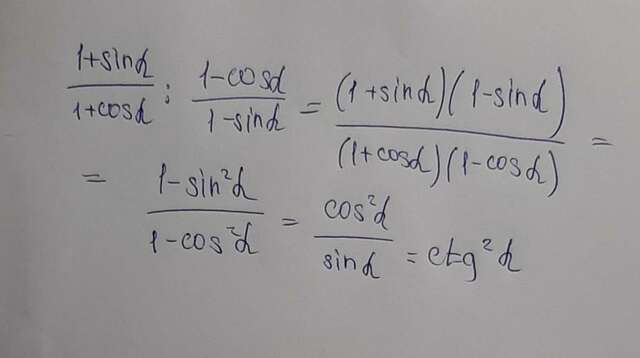 \frac{1+sinα}{1+cosα} : \frac{1-cosα}{1-sinα} = \frac{(1+sinα)(1-sinα)}{(1+cosα)(1-cosα)} =
= \frac{1-sin²α}{1-cos²α} = \frac{cos²α}{sinα} = ctg²α